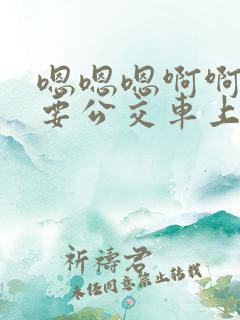 嗯嗯嗯啊啊
要公交車上
祈禱君
未经同意禁止转载